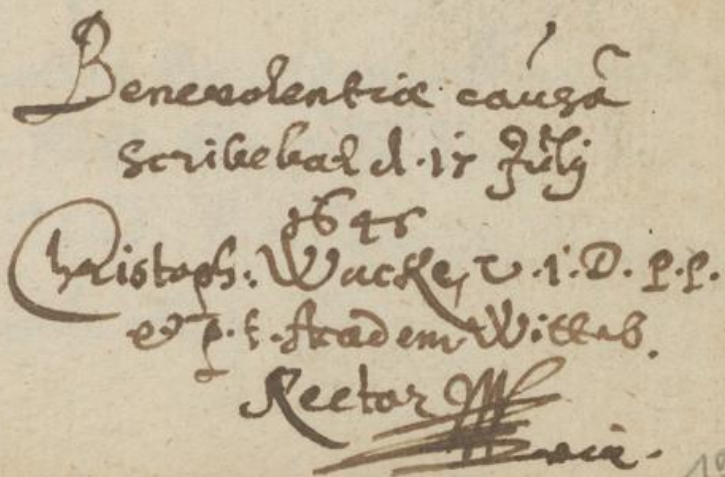 Benevolentiæ caúsâ
scribebat d. 15 Julij
1645
Christoph: Wacke, U.I.D. P.P.
et p.t. Academ. Witteb.
Rector